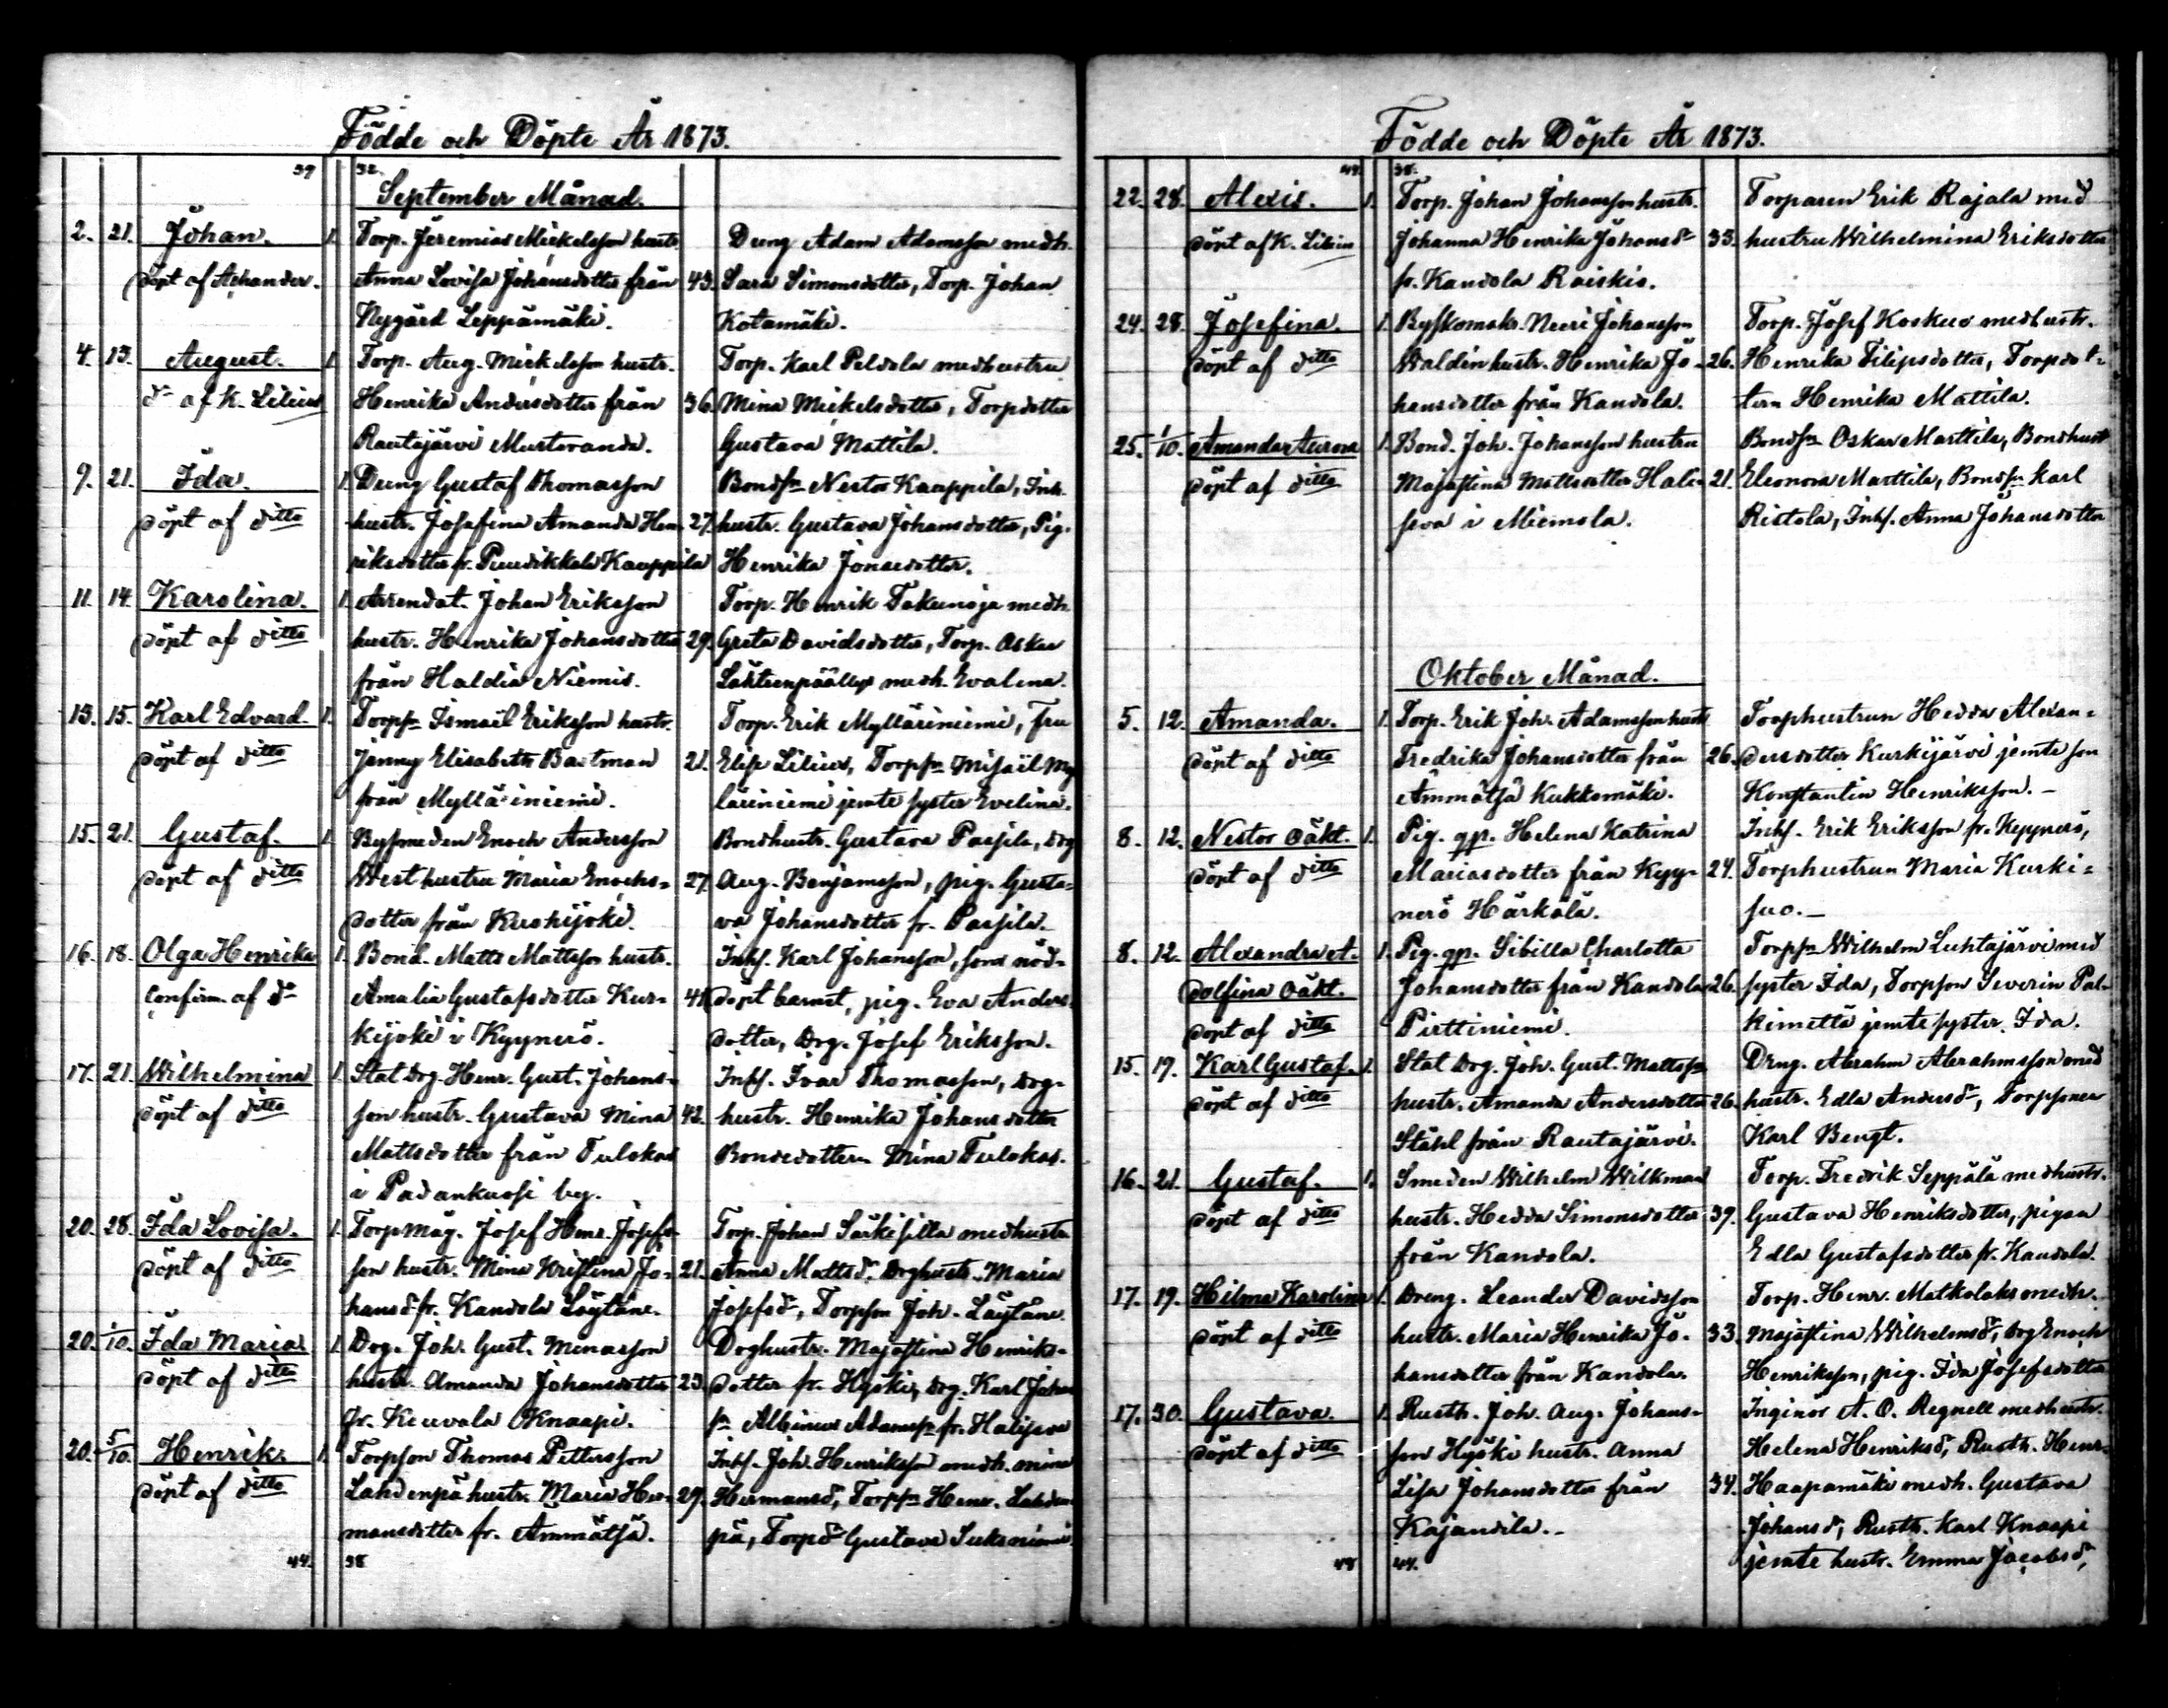 Födde och Döpte År 1873.
39 32.
September Månad.
2. 21. Johan. 1. Torp. Jeremias Mickelsson hustr. Dreng Adam Adamsson medh.
döpt af Achander. Anna Lovisa Johansdotter från 43. Sara Simonsdotter, Torp. Johan
Nygård Leppämäki. Kotamäki.
4. 13. August. 1. Torp. Aug. Mickelsson hustr. Torp. Karl Peldola medhustru
do af K. Lilius Henrika Andersdotter från 36. Mina Mickelsdotter, Torpdotter
Rautajärvi Mustaranda. Gustava Mattila.
9. 21. Ida. 1. Dreng Gustaf Thomasson Bondsn Nestor Kauppila, Inh.
döpt af ditto hustr. Josefina Amanda Hen- 27. hustr. Gustava Johansdotter, Pig.
riksdotter fr. Puudikkala Kauppila Henrika Jonaedotter.
11. 14. Karolina. 1. Arrendat. Johan Eriksson Torp. Henrik Takunoja medh.
döpt af ditto hustr. Henrika Johansdotter 29. Greta Davidsdotter, Torp. Oskar
från Haldia Niemis. Lähteenpäällys medh. Evalena.
13. 15. Karl Edvard. 1. Torpsn Ismaël Eriksson hustr. Torp. Erik Mylläriniemi, Fru
döpt af ditto Jenny Elisabeth Bastman 21. Elise Lilius, Torpsn Misaël Myl
från Mylläriniemi. läriniemi jemte syster Evelina.
15. 21. Gustaf. 1. Bysmeden Enoch Andersson Bondhustr. Gustava Passila, Drg
döpt af ditto West hustru Maria Enochs- 27. Aug. Benjamsson, pig. Gusta-
dotter från Kuohijoki. va Johansdotter fr. Passila.
16. 18. Olga Henrika 1. Bond. Matts Mattsson hustr. Inhs. Karl Johansson, som nöd-
Confirm. af do Amalia Gustafsdotter Kur- 41. döpt barnet, pig. Eva Anders-
kijoki i Kyynerö. dotter, Drg. Josef Eriksson.
17. 21. Wilhelmina 1. Stat Drg. Henr. Gust. Johans- Inhs. Ivar Thomasson, Drg.
döpt af ditto son hustr. Gustava Mina 42. hustr. Henrika Johansdotter
Mattsdotter från Tulokas Bondedottern Mina Tulokas.
i Padankassi by.
20. 28. Ida Lovisa. 1. Torpmåg. Josef Henr. Josefs- Torp. Johan Särkisilla medhustr.
döpt af ditto son hustr. Mina Kristina Jo- 21. Anna Mattsdr. Drghustr. Maria
hansdr fr. Kandola Läytäne. Josefsdr, Torpson Joh. Läytäne
20. 1/10. Ida Maria. 1. Drg. Joh. Gust. Minasson Drghustr. Majastina Henriks-
döpt af ditto hustr. Amanda Johansdotter 23. dotter fr. Hyski, Drg. Karl Johans
fr. Keuvala Knaapi. sn Albinus Adamsn fr. Halijsva
20. 5/10. Henrik. 1. Torpson Thomas Pettersson Inhs. Joh. Henriksson medh. Mina
döpt af ditto Lahdenpä hustr. Maria Her- 29. Hermansdr, Torpsn Henr. Lahden
mansdotter fr. Ämmätsä. pä, Torpdr Gustava Suksiniemi
44. 38
Födde och Döpte År 1873.
44. 38.
22. 28. Alexis. 1. Torp. Johan Johansson hustr. Torparen Erik Rajala med
döpt af K. Lilius Johanna Henrika Johansdr 33. hustru Wilhelmina Eriksdotter
fr. Kandola Raiskis.
24. 28. Josefina. 1. Byskomak. Neeri Johansson Torp. Josef Koskue medhustr.
döpt af ditto Waldén hustr. Henrika Jo- 26. Henrika Filipsdotter, Torpdot-
hansdotter från Kandola. tern Henrika Mattila.
25. 1/10. Amanda Aurora 1. Bond. Joh. Johansson hustru Bondsn Oskar Marttila, Bondhust
döpt af ditto Majastina Mattsdotter Hali- 21. Eleonora Marttila, Bondsn Karl
seva i Miemola. Ristola, Inhs. Anna Johansdotter
Oktober Månad.
5. 12. Amanda. 1. Torp. Erik Joh. Adamsson hustr Torphustrun Hedda Alexan-
döpt af ditto Fredrika Johansdotter från 26. dersdotter Kurkijärvi jemte son
Ämmätsä Kukkomäki. Konstantin Henriksson.-
8. 12. Nestor Oäkt. 1. Pig. qp. Helena Katrina Inhs. Erik Eriksson fr. Kyynerö,
döpt af ditto Mariasdotter från Kyy- 24. Torphustrun Maria Kurki-
nerö Härkälä. suo.-
8. 12. Alexandra A- 1. Pig. qp. Sibilla Charlotta Torpsn Wilhelm Luhtajärvi med
dolfina Oäkt. Johansdotter från Kandola 26. syster Ida, Torpson Severin Pal-
döpt af ditto Pirttiniemi. kimetta jemte syster Ida.
15. 19. Karl Gustaf. 1. Stat Drg. Joh. Gust. Mattssn Drng. Abraham Abrahmsson med
döpt af ditto hustr. Amanda Andersdotter 26. hustr. Edla Andersdr, Torpsonen
Ståhl från Rautajärvi. Karl Bengt.
16. 21. Gustaf. 1. Smeden Wilhelm Wilkman Torp. Fredrik Seppälä medhustr.
döpt af ditto hustr. Hedda Simonsdotter 39. Gustava Henriksdotter, pigan
från Kandola. Edla Gustafsdotter fr. Kandola.
17. 19. Hilma Karolina 1. Dreng. Leander Davidsson Torp. Henr. Matkolaks medh.
döpt af ditto hustr. Maria Henrika Jo- 33. Majastina Wilhelmsdr, Drg Enoch
hansdotter från Kandola. Henriksson, pig. Ida Josefsdotter
17. 30. Gustava. 1. Rusth. Joh. Aug. Johans- Inginör A. O. Regnell medhustr.
döpt af ditto son Hyöki hustr. Anna Helena Henriksdr, Rusth. Henr.
Lisa Johansdotter från 34. Haapamäki medh. Gustava
Kajandila.- Johansdr, Rusth. Karl Knaapi
jemte hustr. Emma Jacobsdr,
48 44.